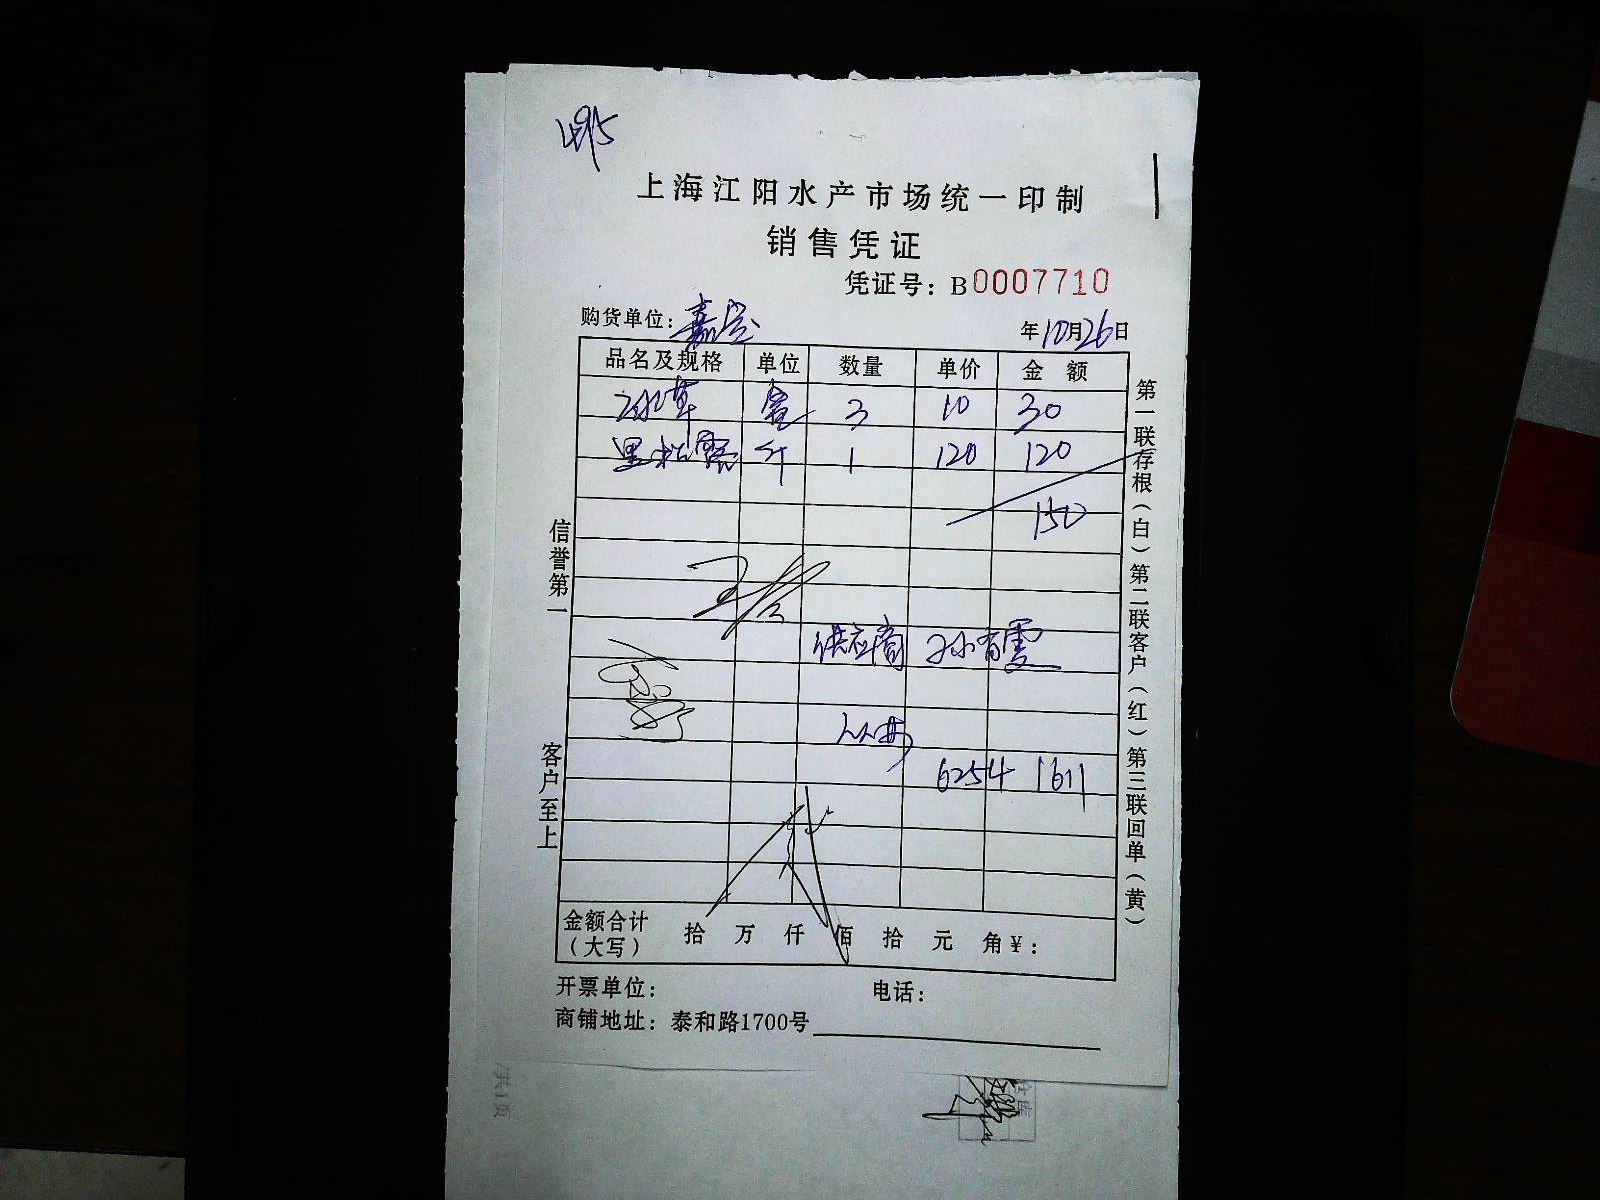 上海江阳水产市场统一印制
销售凭证
凭证号：B0007710
购货单位：嘉定
年10月26日
品名及规格 单位 数量 单价 金额
冰草 盒 3 10 30
黑松露 斤 1 120 120
150
供应商 孙有霞
6254 1611
金额合计（大写） 拾 万 仟 佰 拾 元 角¥：
开票单位： 电话：
商铺地址：泰和路1700号
信誉第一
客户至上
第一联存根（白）第二联客户（红）第三联回单（黄）
共1页